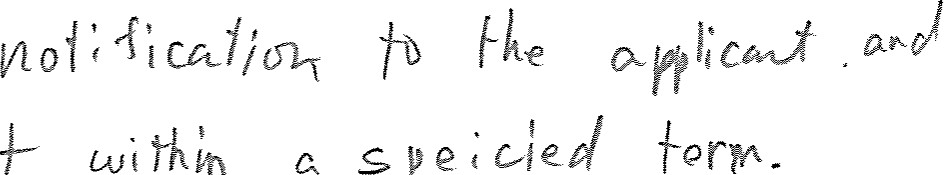 notification to the applicant. and
t within a speicied term.